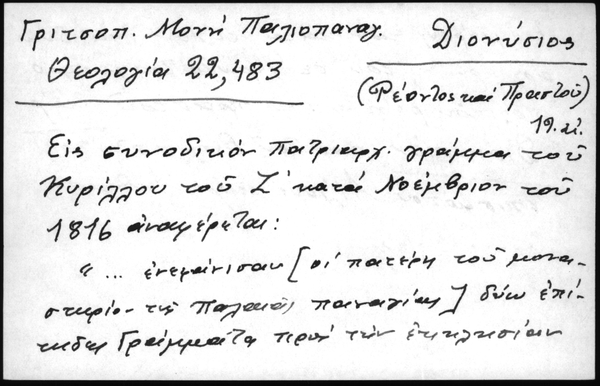 Γριτσοπ. Μονή Παλιοπαναγ.
Διονύσιος
Θεολογία 22,483
(Ρέοντος καί Πραστοῦ)
19. αἰ.
Εἰς συνοδικόν Πατριαρχ. γράμμα τοῦ
Κυρίλλου τοῦ Ζ΄ κατά Νοέμβριον τοῦ
1816 ἀναφέρεται:
"... ἐνεφάνισαν [οἱ πατέρες τοῦ μονα-
στηρίου τῆς Παλαιᾶς Παναγίας] δύω ἐπί-
σημα Γράμματα πρός τήν ἐκκλησίαν